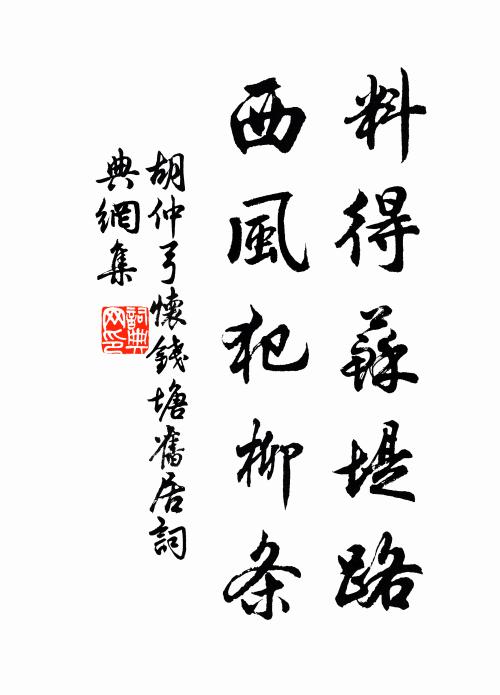 料得蘇堤路
西風犯柳条
胡仲弓懷錢塘舊居詞
典網集
詞典
网印